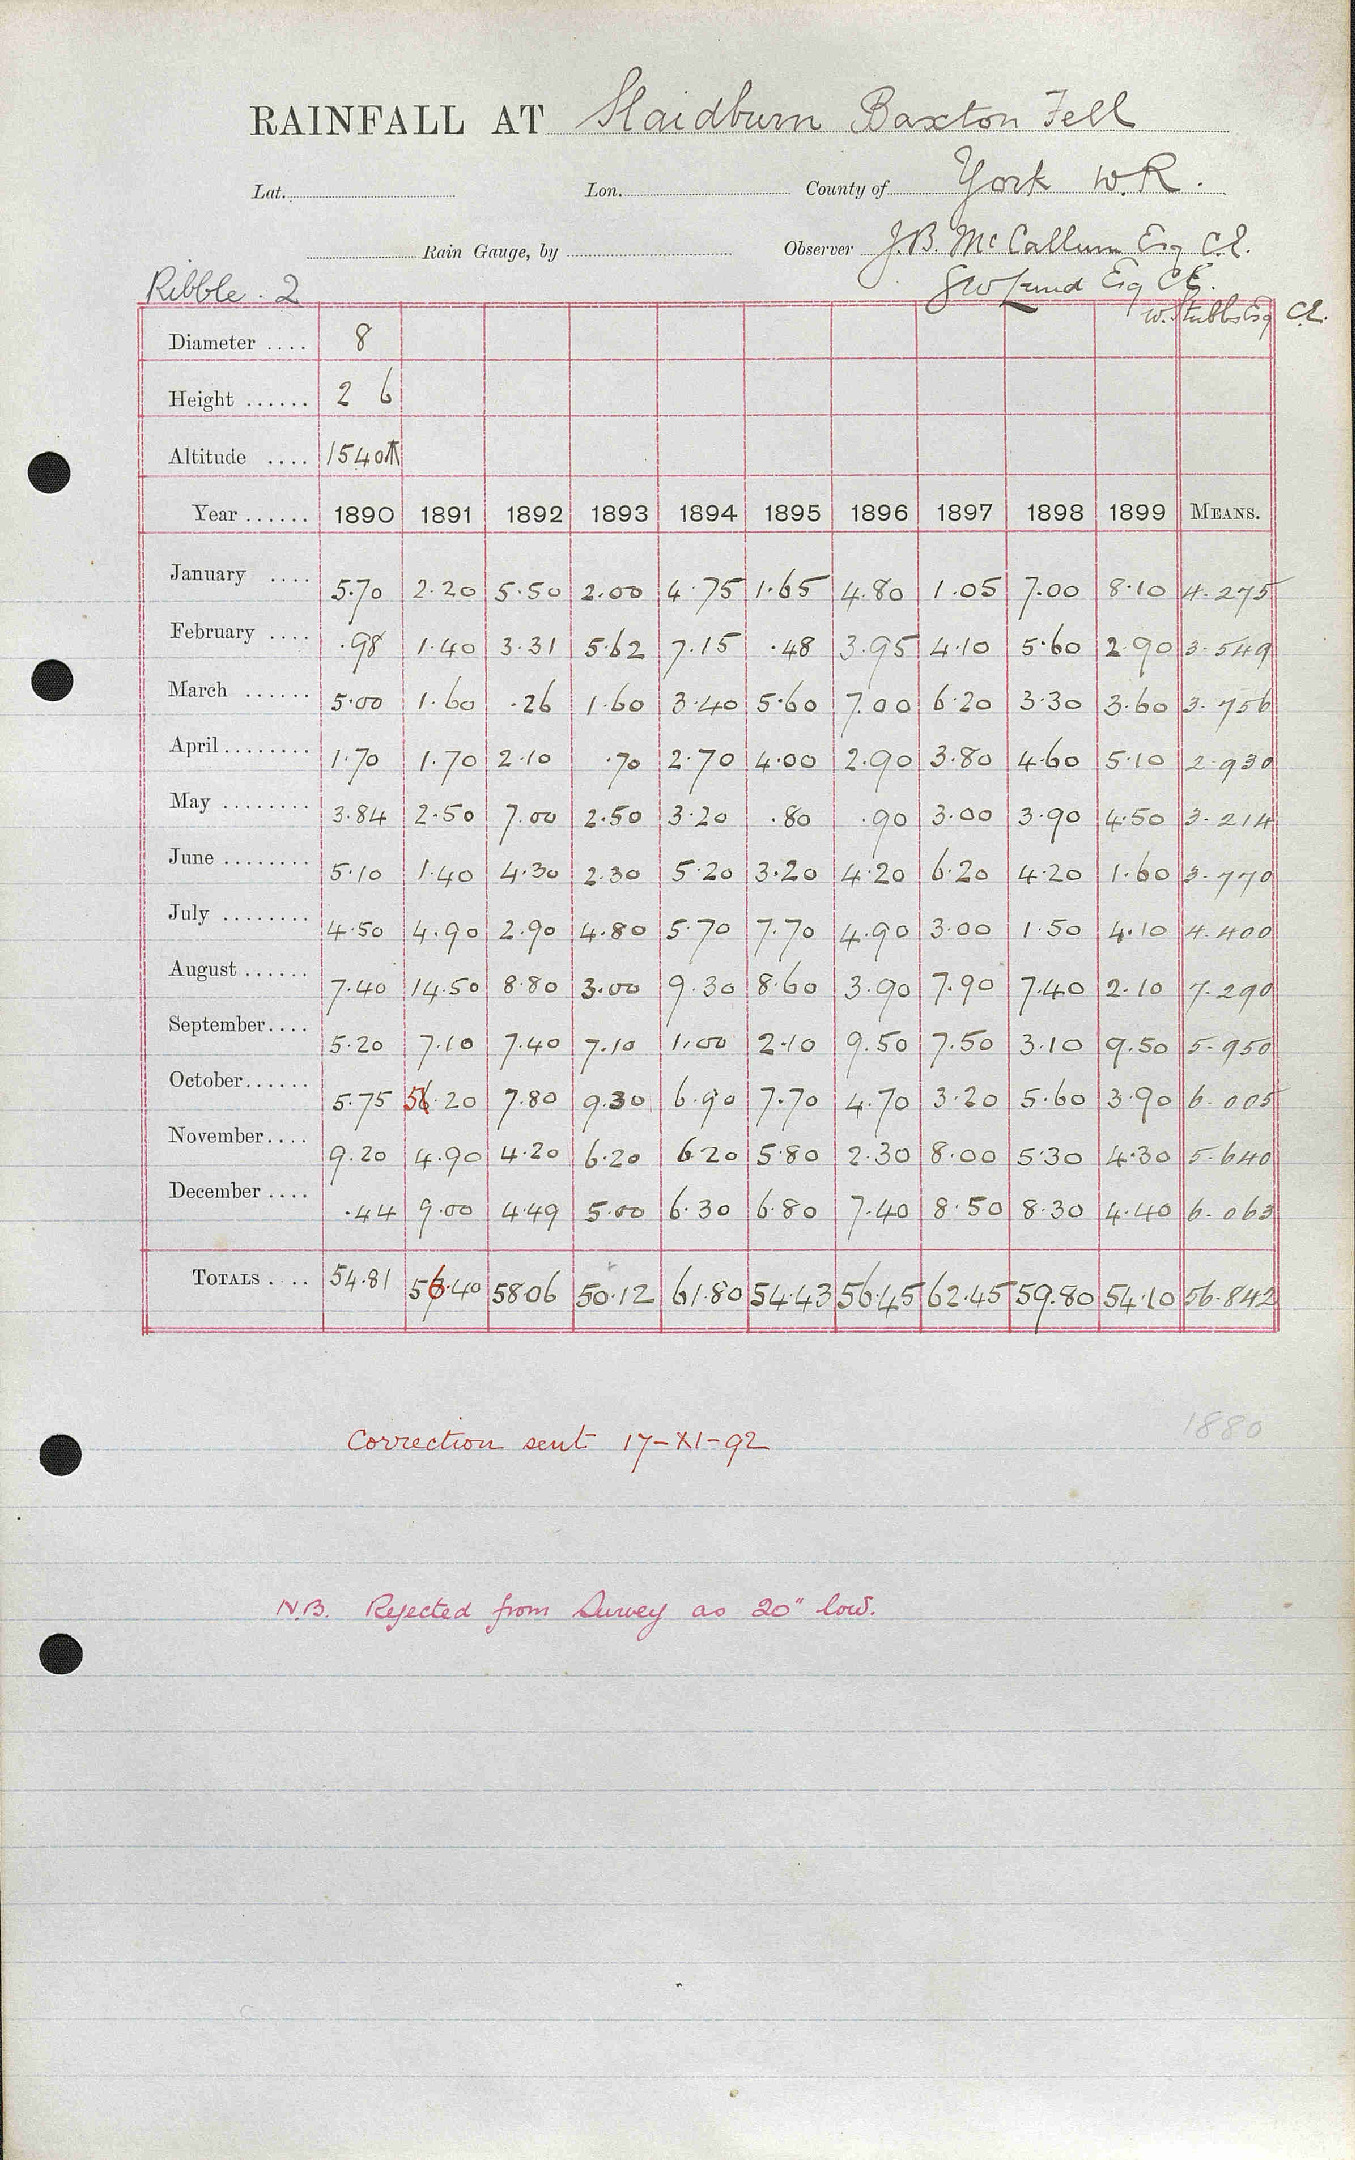 RAINFALL AT Slaidburn Baxton Fell
Lat. Lon. County of York W.R.
Rain Gauge, by Observer J.B. McCallum Esq C.E.
Ribble. 2 Lund Esq C.E.
W. Stubbs Esq C.E.
Diameter .... 8
Height ...... 2 6
Altitude .... 1540
Year ...... 1890 1891 1892 1893 1894 1895 1896 1897 1898 1899 MEANS.
January .... 5.70 2.20 5.50 2.00 4.75 1.65 4.80 1.05 7.00 8.10 4.275
February .... .98 1.40 3.31 5.62 7.15 .48 3.95 4.10 5.60 2.90 3.549
March ...... 5.00 1.60 .26 1.60 3.40 5.60 7.00 6.20 3.30 3.60 3.756
April ........ 1.70 1.70 2.10 .70 2.70 4.00 2.90 3.80 4.60 5.10 2.930
May ........ 3.84 2.50 7.00 2.50 3.20 .80 .90 3.00 3.90 4.50 3.214
June ........ 5.10 1.40 4.30 2.30 5.20 3.20 4.20 6.20 4.20 1.60 3.770
July ........ 4.50 4.90 2.90 4.80 5.70 7.70 4.90 3.00 1.50 4.10 4.400
August ...... 7.40 14.50 8.80 3.00 9.30 8.60 3.90 7.90 7.40 2.10 7.290
September .... 5.20 7.10 7.40 7.10 1.00 2.10 9.50 7.50 3.10 9.50 5.950
October ...... 5.75 5.20 7.80 9.30 6.90 7.70 4.70 3.20 5.60 3.90 6.005
November .... 9.20 4.90 4.20 6.20 6.20 5.80 2.30 8.00 5.30 4.30 5.640
December .... .44 9.00 4.49 5.00 6.30 6.80 7.40 8.50 8.30 4.40 6.063
TOTALS .... 54.81 56.40 58.06 50.12 61.80 54.43 56.45 62.45 59.80 54.10 56.842
Correction sent 17-XI-92 1880
N.B. Rejected from Survey as 20" low.